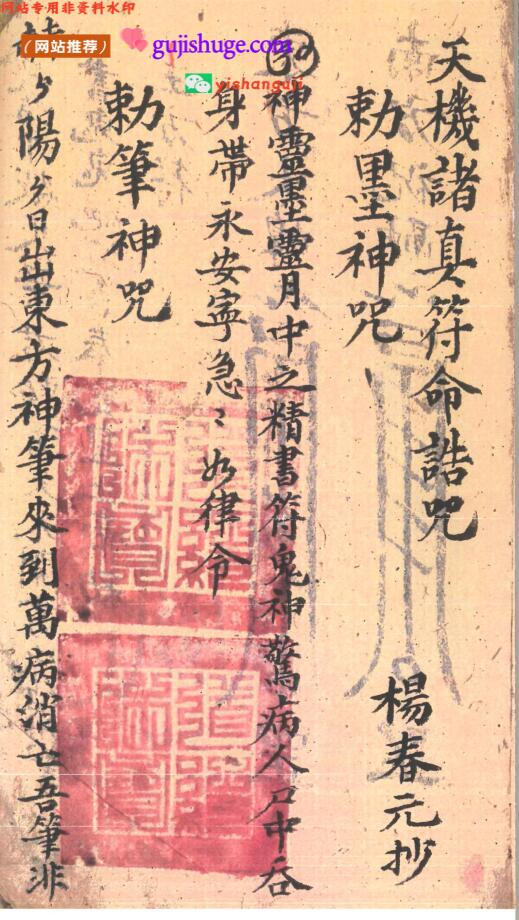 网站专用非资料水印
(网站推荐)
gujishuge.com
yishanguji
天機諸真符命誥咒
楊春元抄
勅墨神咒
神靈墨靈月中之精書符鬼神驚病人口中吞
身帶永安寧急〻如律令
勅筆神咒
陽〻日出東方神筆來到萬病消亡吾筆非